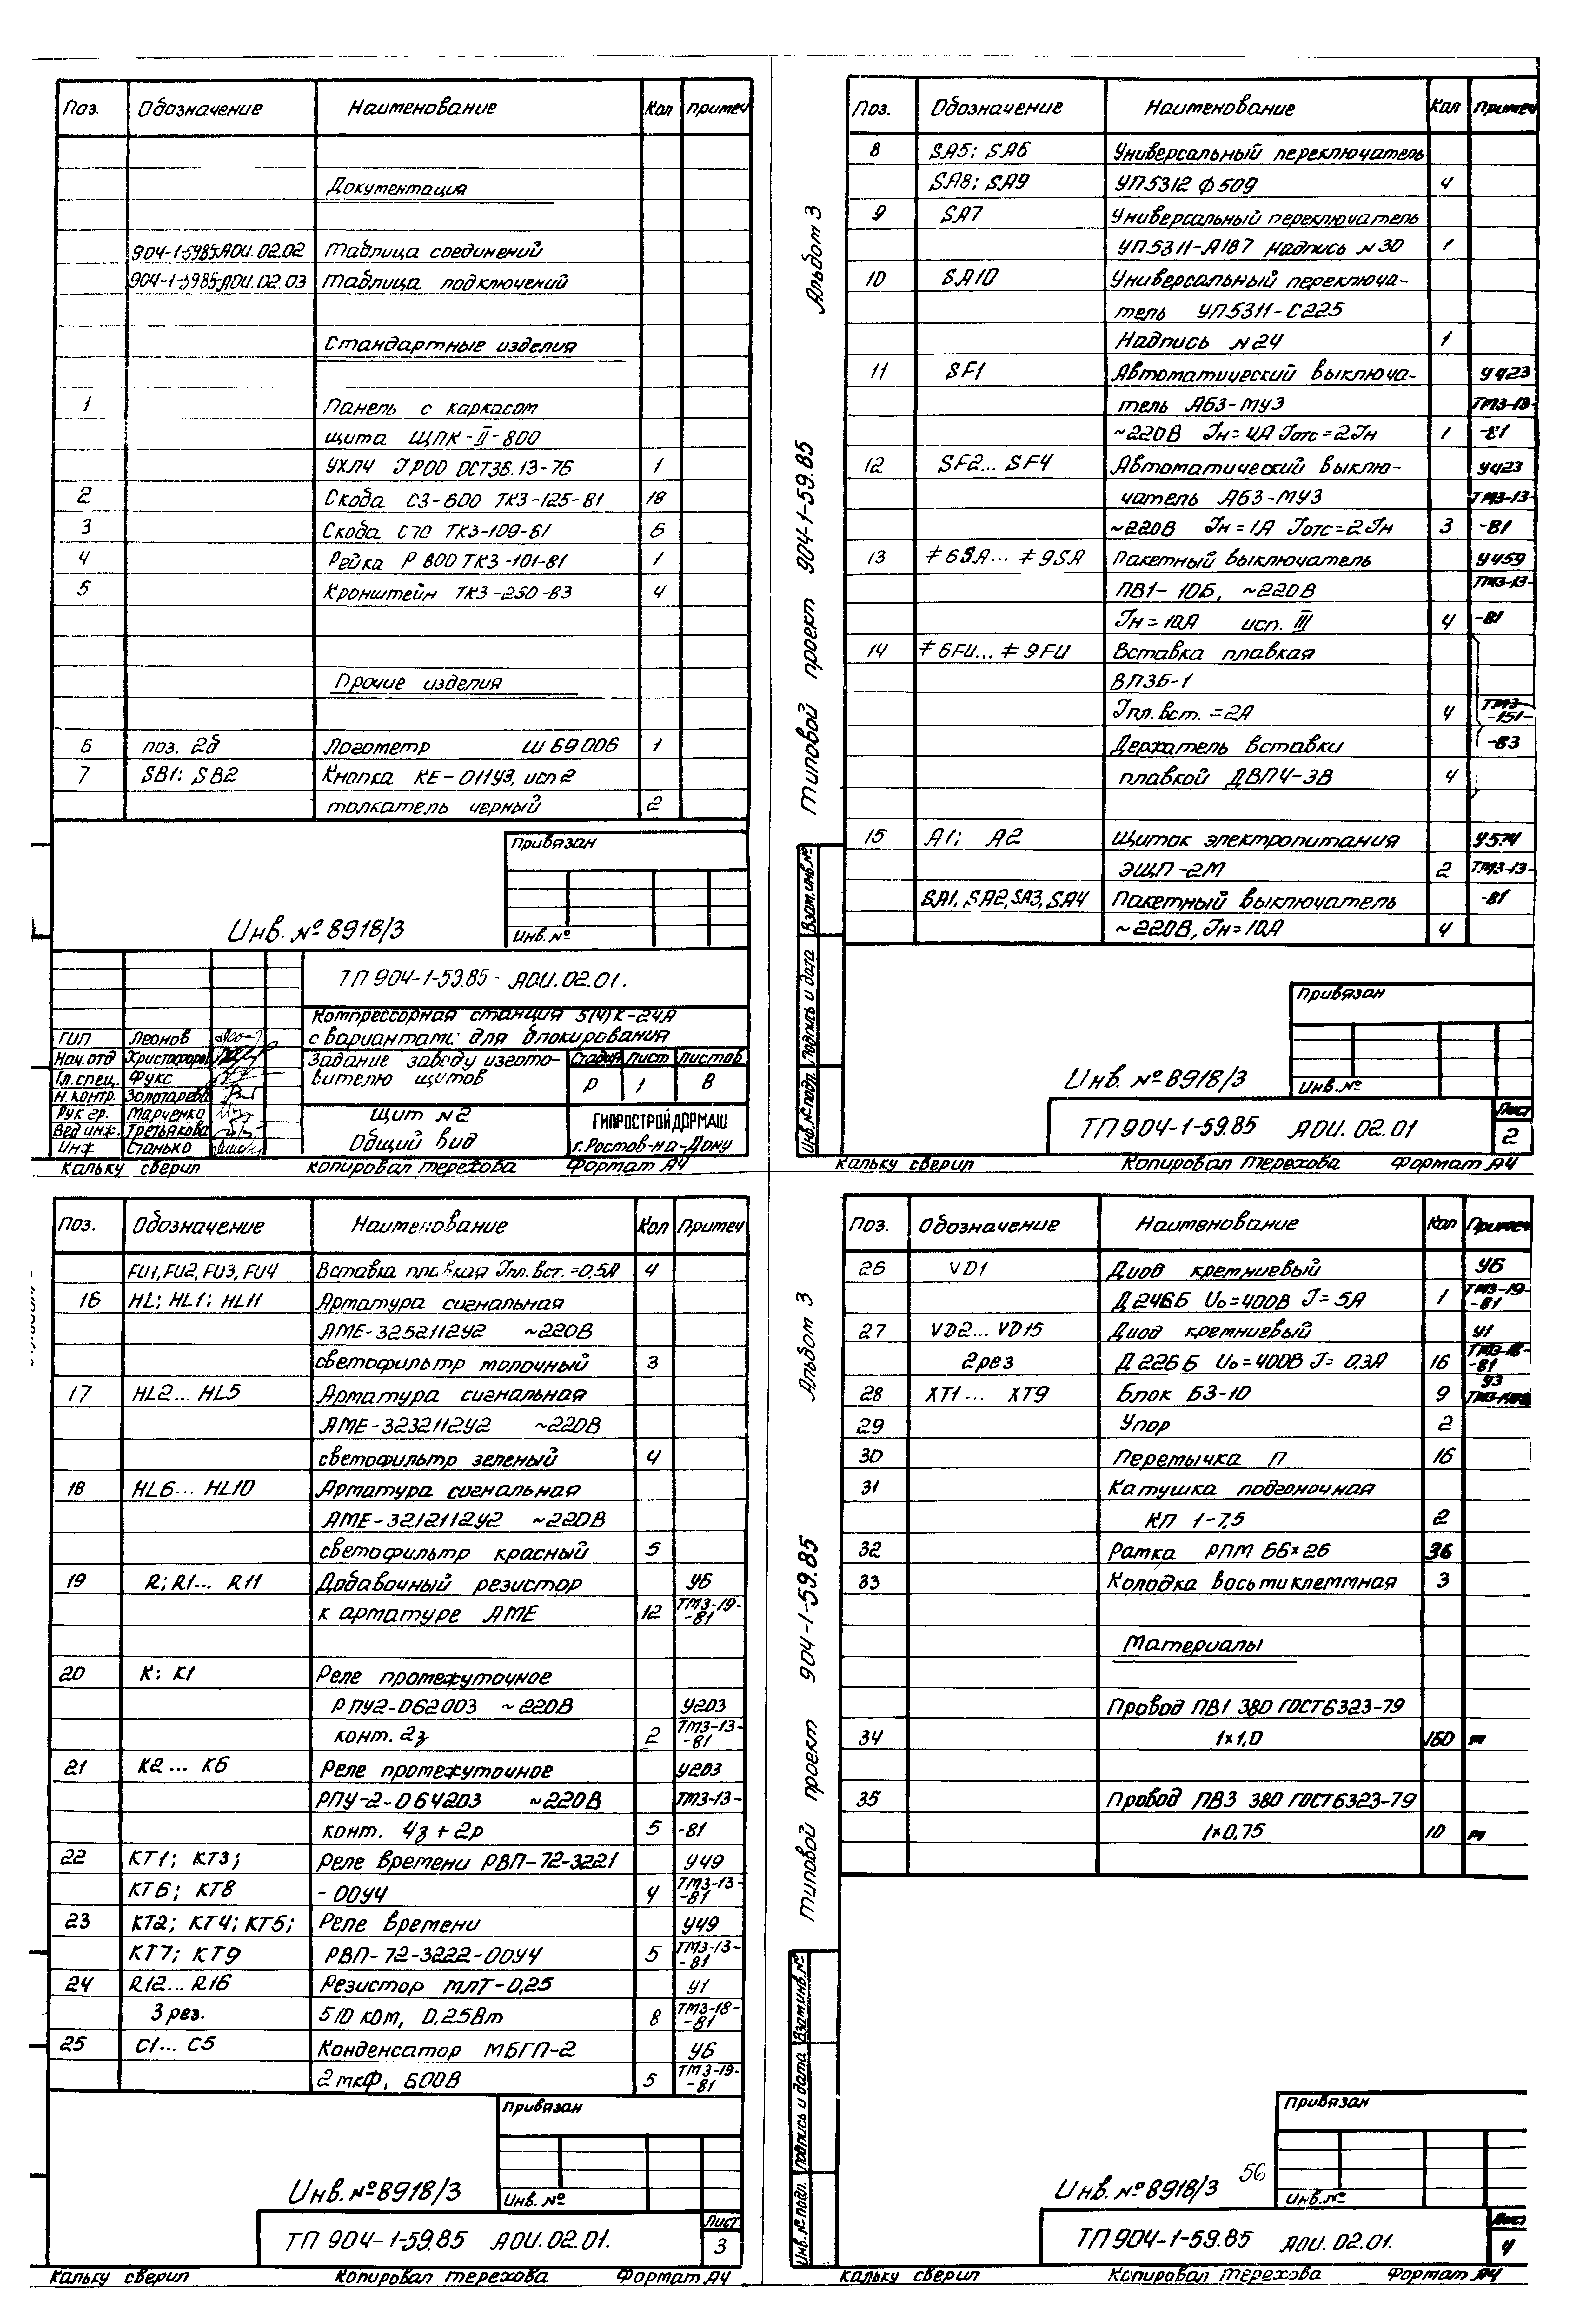 Поз. Обозначение Наименование Кол Примеч
Документация
904-1-5985-АОИ.02.02 Таблица соединений
904-1-5985-АОИ.02.03 Таблица подключений
Стандартные изделия
1 Панель с каркасом
щита ЩПК-II-800
УХЛ4 IР00 ОСТ36.13-76 1
2 Скоба С3-600 ТК3-125-81 18
3 Скоба С70 ТК3-109-81 6
4 Рейка Р 800 ТК3-101-81 1
5 Кронштейн ТК3-250-83 4
Прочие изделия
6 поз. 2б Логометр Ш 69006 1
7 SB1; SB2 Кнопка КЕ-011У3, исп 2
толкатель черный 2
Привязан
Инв. №
Инв. № 8918/3
ТП 904-1-59.85- АОИ.02.01.
Компрессорная станция 5(4)К-24А
с вариантами для блокирования
ГИП Леонов
Нач.отд Христофоров
Гл.спец. Фукс
Н.контр. Золотарева
Рук гр. Марченко
Вед инж. Третьякова
Инж Станько
Задание заводу изгото-
вителю щитов
Стадия Лист Листов
Р 1 8
Щит №2
Общий вид
ГИПРОСТРОЙДОРМАШ
г.Ростов-на-Дону
Кальку сверил Копировал Терехова Формат А4
Альбом 3
Типовой проект 904-1-59.85
Поз. Обозначение Наименование Кол Примеч
8 SA5; SA6 Универсальный переключатель
SA8; SA9 УП5312 Ф509 4
9 SA7 Универсальный переключатель
УП5311-А187 Надпись №30 1
10 SA10 Универсальный переключа-
тель УП5311-С225
Надпись №24 1
11 SF1 Автоматический выключа- У423
тель А63-МУ3 ТМ3-13-
~220В Iн=4А Iотс=2Iн 1 -81
12 SF2... SF4 Автоматический выклю- У423
чатель А63-МУ3 ТМ3-13-
~220В Iн=1А Iотс=2Iн 3 -81
13 ≠6SA... ≠9SA Пакетный выключатель У459
ПВ1-10Б, ~220В ТМ3-13-
Iн=10А исп. III 4 -81
14 ≠6FU... ≠9FU Вставка плавкая
ВП3Б-1
Iпл.вст.=2А 4 ТМ3-
-151-
Держатель вставки -83
плавкой ДВП4-3В 4
15 А1; А2 Щиток электропитания У574
ЭЩП-2М 2 ТМ3-13-
SA1, SA2, SA3, SA4 Пакетный выключатель -81
~220В, Iн=10А 4
Взам.инв.№
Подпись и дата
Инв.№ подл.
Привязан
Инв.№
Инв. № 8918/3
ТП 904-1-59.85 АОИ.02.01
Лист
2
Кальку сверил Копировал Терехова Формат А4
Поз. Обозначение Наименование Кол Примеч
FU1, FU2, FU3, FU4 Вставка плавкая Iпл.вст.=0,5А 4
16 HL; HL1; HL11 Арматура сигнальная
АМЕ-3252112У2 ~220В
светофильтр молочный 3
17 HL2... HL5 Арматура сигнальная
АМЕ-3232112У2 ~220В
светофильтр зеленый 4
18 HL6... HL10 Арматура сигнальная
АМЕ-3212112У2 ~220В
светофильтр красный 5
19 R; R1... R11 Добавочный резистор У6
к арматуре АМЕ 12 ТМ3-19-
-81
20 К; К1 Реле промежуточное
РПУ2-062003 ~220В У203
конт. 2з 2 ТМ3-13-
-81
21 К2... К6 Реле промежуточное У203
РПУ-2-064203 ~220В ТМ3-13-
конт. 4з+2р 5 -81
22 КТ1; КТ3; Реле времени РВП-72-3221 У49
КТ6; КТ8 -00У4 4 ТМ3-13-
-81
23 КТ2; КТ4; КТ5; Реле времени У49
КТ7; КТ9 РВП-72-3222-00У4 5 ТМ3-13-
-81
24 R12... R16 Резистор МЛТ-0,25 У1
3 рез. 510 ком, 0,25Вт 8 ТМ3-18-
-81
25 С1... С5 Конденсатор МБГП-2 У6
2 мкФ, 600В 5 ТМ3-19-
-81
Привязан
Инв. №
Инв.№8918/3
ТП 904-1-59.85 АОИ.02.01.
Лист
3
Кальку сверил Копировал Терехова Формат А4
Альбом 3
Типовой проект 904-1-59.85
Поз. Обозначение Наименование Кол Примеч
26 VD1 Диод кремниевый У6
Д246Б Uо=400В I=5А 1 ТМ3-19-
-81
27 VD2... VD15 Диод кремниевый У1
2рез Д226Б Uо=400В I=0,3А 16 ТМ3-18-
-81
28 ХТ1... ХТ9 Блок Б3-10 9 У3
29 Упор 2
30 Перемычка П 16
31 Катушка подгоночная
КП 1-7,5 2
32 Рамка РПМ 66×26 36
33 Колодка восьмиклеммная 3
Материалы
Провод ПВ1 380 ГОСТ6323-79
34 1×1,0 160 м
35 Провод ПВ3 380 ГОСТ6323-79
1×0,75 10 м
Взам.инв.№
Подпись и дата
Инв.№ подл.
Привязан
Инв.№
56
Инв. №8918/3
ТП 904-1-59.85 АОИ.02.01.
Лист
4
Кальку сверил Копировал Терехова Формат А4